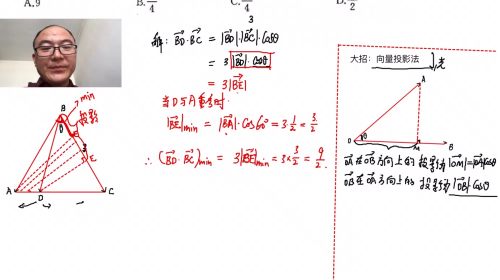 A.9 B. /4 C. /4 D. /2
3
解: BD·BC = |BD|·|BC|·cosθ
= 3 |BD|·cosθ
= 3|BE|
当D与A重合时
|BE|min = |BA|·cos60° = 3·1/2 = 3/2
∴ (BD·BC)min = 3|BE|min = 3×3/2 = 9/2
min
投影
B
θ
E
E
A
D
C
大招：向量投影法
A
O
θ
M
B
OA在OB方向上的投影为|OM|=|OA|cosθ
OB在OA方向上的投影为|OB|·cosθ